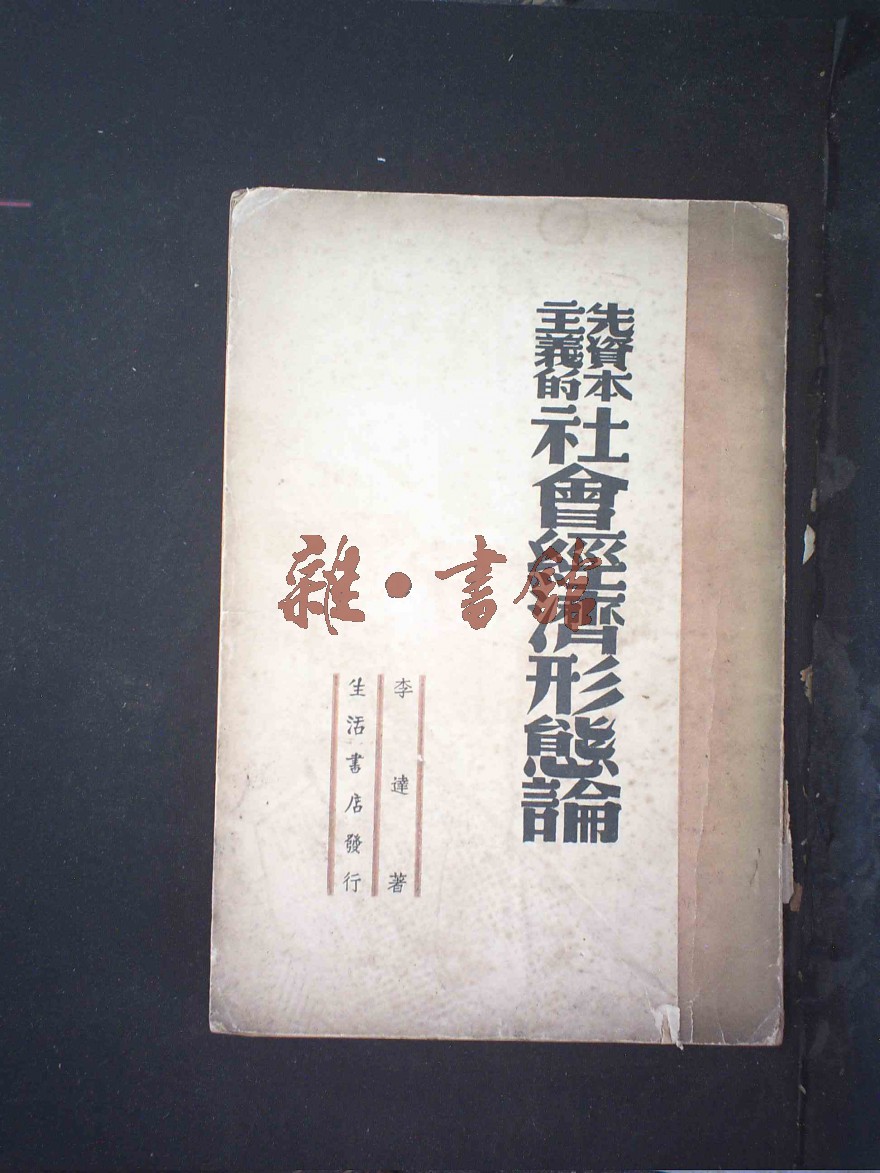 先資本
主義的
社會經濟形態論
李達著
生活書店發行
雜·書館